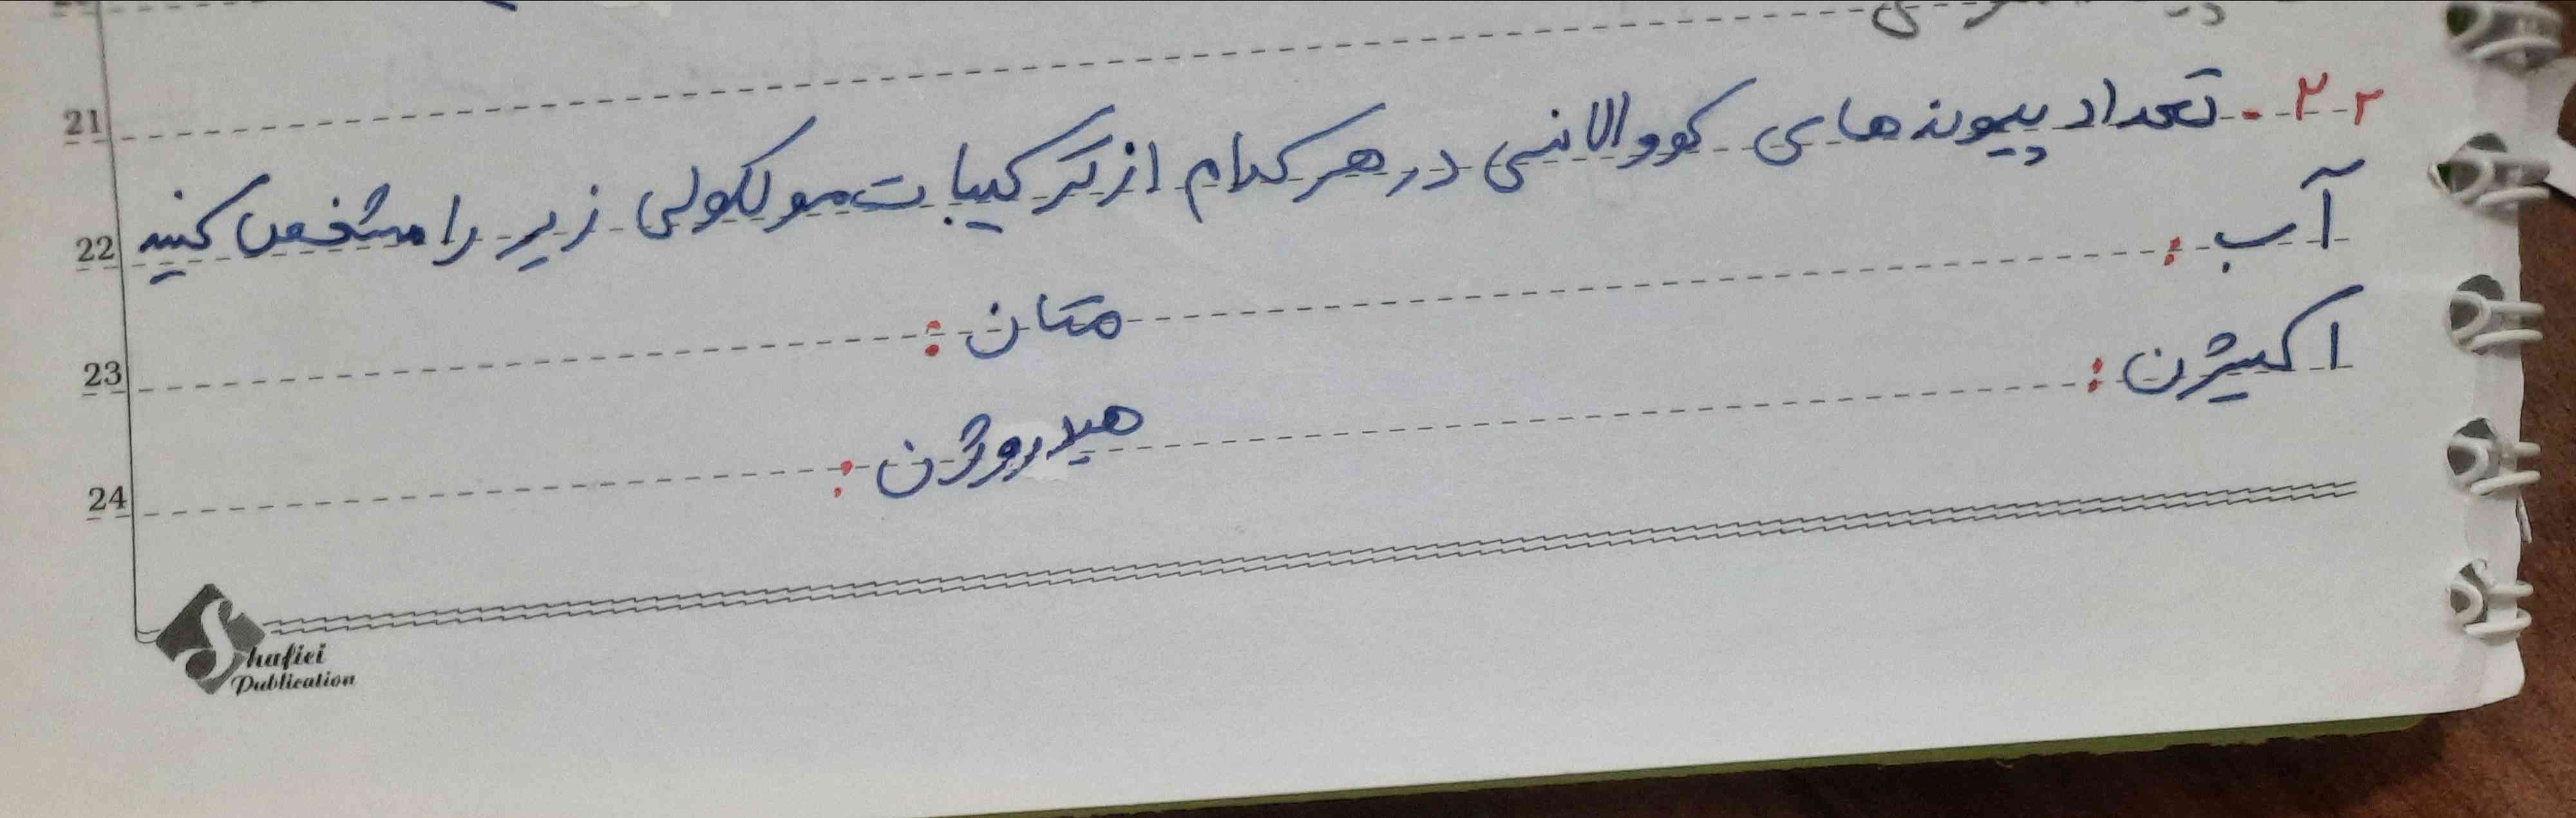 21
۲۲. تعداد پیوند های کووالانسی در هر کدام از ترکیبات مولکولی زیر را مشخص کنید
22
آب :
متان :
23
اکسیژن :
هیدروژن :
24
Shafiei
Publication